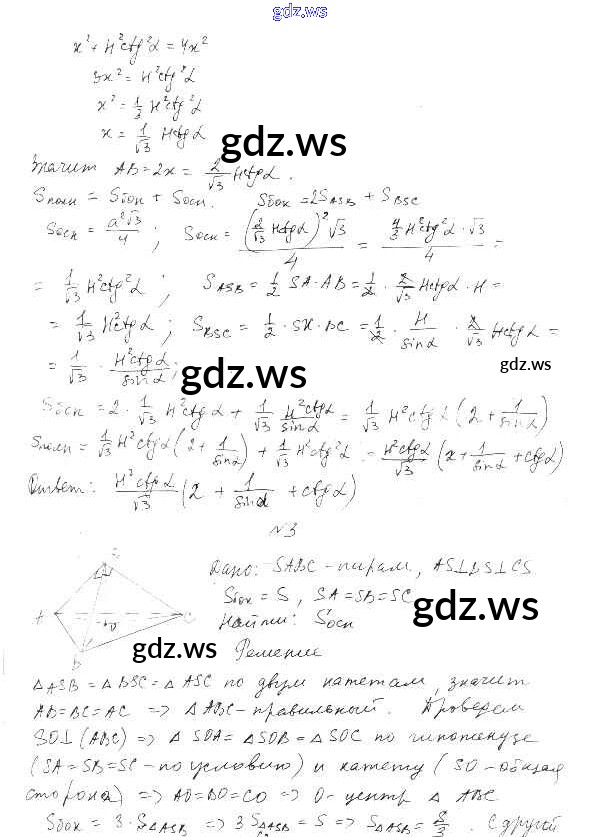 gdz.ws
x² + H²ctg²α = 4x²
3x² = H²ctg²α
x² = 1/3 H²ctg²α
x = 1/√3 Hctgα
gdz.ws
Значит AB = 2x = 2/√3 Hctgα.
Sполн = Sбок + Sосн. Sбок = 2S_ASB + S_BSC
Sосн = a²√3/4 ; Sосн = (2/√3 Hctgα)²√3/4 = 4/3 H²ctg²α · √3/4 =
= 1/√3 H²ctg²α ; S_ASB = 1/2 SA · AB = 1/2 · 2/√3 Hctgα · H =
= 1/√3 H²ctgα ; S_BSC = 1/2 · SK · BC = 1/2 · H/sinα · 2/√3 Hctgα =
= 1/√3 · H²ctgα/sinα ;
gdz.ws
gdz.ws
Sбок = 2 · 1/√3 H²ctgα + 1/√3 H²ctgα/sinα = 1/√3 H²ctgα (2 + 1/sinα)
Sполн = 1/√3 H²ctgα (2 + 1/sinα) + 1/√3 H²ctg²α = H²ctgα/√3 (2 + 1/sinα + ctgα)
Ответ: H²ctgα/√3 (2 + 1/sinα + ctgα)
N3
S
A
C
O
B
Дано: SABC - пирам, AS⊥BS⊥CS
Sбок = S, SA = SB = SC
Найти: Sосн
gdz.ws
gdz.ws
Решение
△ASB = △BSC = △ASC по двум катетам, значит
AB = BC = AC => △ABC - правильный. Проведем
SO⊥(ABC) => △SOA = △SOB = △SOC по гипотенузе
(SA = SB = SC - по условию) и катету (SO - общая
сторона) => AO = BO = CO => O - центр △ABC
Sбок = 3 · S△ASB => 3S△ASB = S => S△ASB = S/3 . С другой